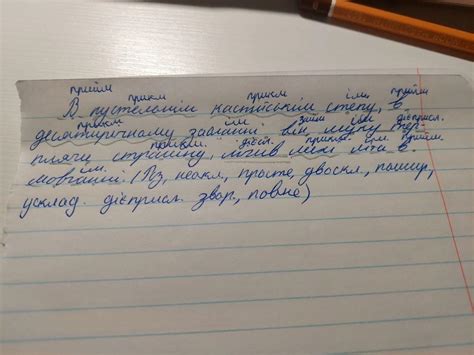 прийм прикм прикм ім. прийм
В пустельнім каспійськім степу, в
прикм ім. займ ім дієприсл.
десятирічному засланні він муку тер-
прикм. дієсл. прикм. ім. прийм
плячи страшну, лічив літа в
ім.
мовчанні. (Пз, неокл, просте, двоскл, пошир,
усклад. дієприсл. звор., повне)